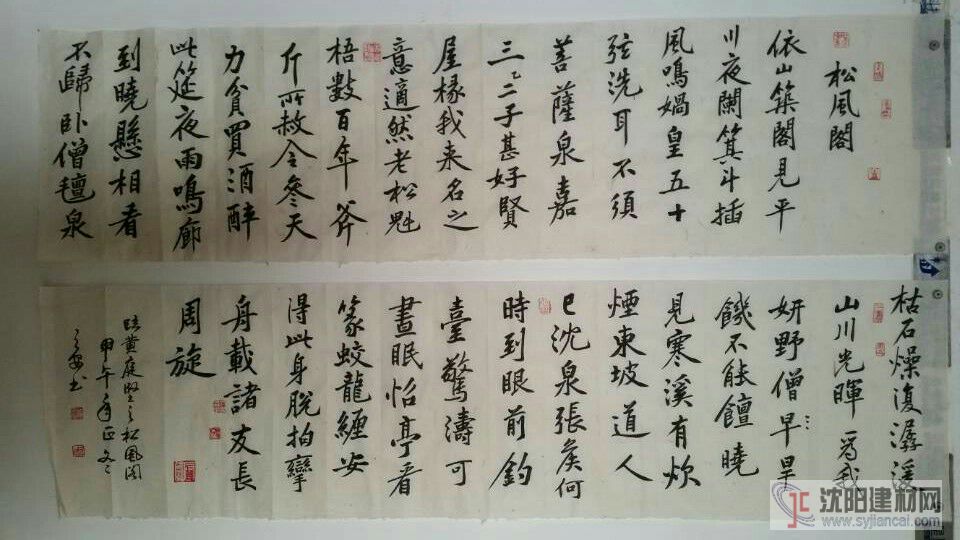 松風閣
依山築閣見平
川夜闌箕斗插
風鳴媧皇五十
弦洗耳不須
菩薩泉嘉
三二子甚好賢
屋椽我来名之
意適然老松魁
梧數百年斧
斤所赦今參天
力貧買酒醉
此筵夜雨鳴廊
到曉懸相看
不歸卧僧氊泉
枯石燥復潺湲
山川光暉為我
妍野僧早旱
饑不能饘曉
見寒溪有炊
煙東坡道人
已沈泉張矦何
時到眼前釣
臺驚濤可
晝眠怡亭看
篆蛟龍纏安
得此身脫拘攣
舟載諸友長
周旋
黄庭堅之松風閣
甲午年正
书
沈阳建材网
www.syjiancai.com